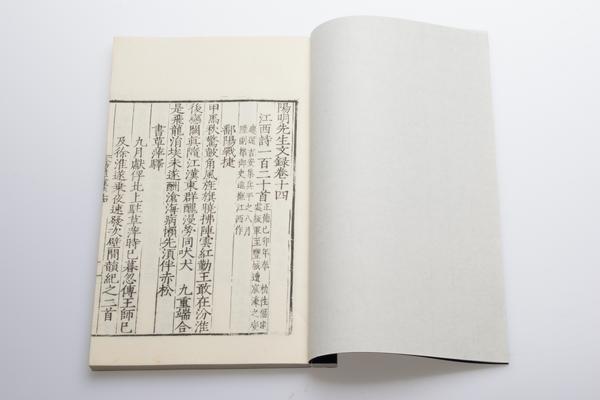 陽明先生文録卷十四
江西詩一百二十首
正德己卯年奉
鄱陽戰捷
甲馬秋驚鼓角風旌旗曉拂陣雲紅勤王敢在汾淮
後戀闕真隨江漢東群醜漫勞同吠犬九重端合
是飛龍涓埃未遂酬滄海病懶先須伴赤松
書草萍驛
九月獻俘北上駐草萍時已暮忽傳王師已
及徐淮遂乗夜速發次壁間韻紀之二首